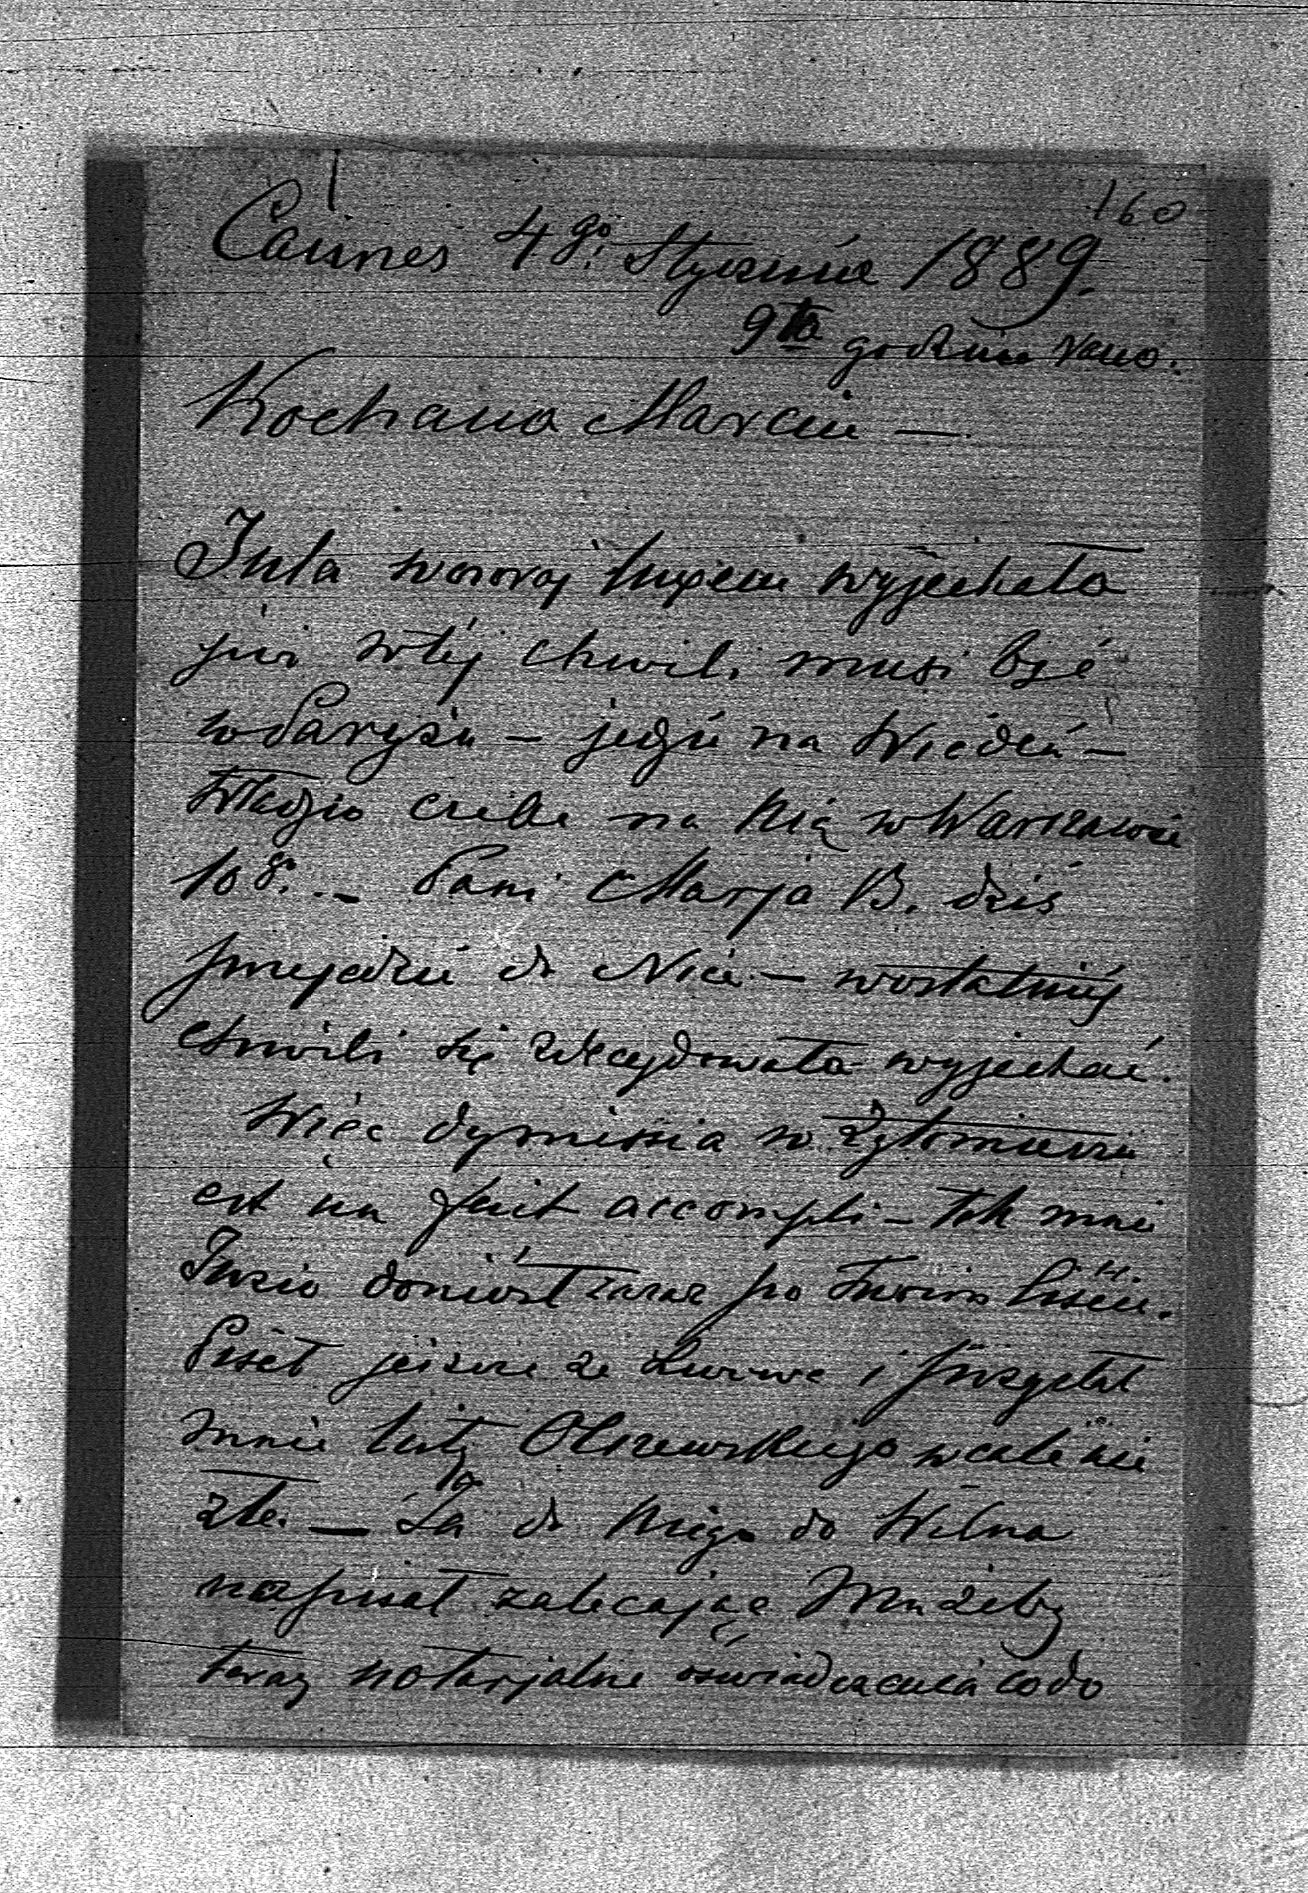 160
Cannes 4go. Stycznia 1889.
9ta godzina rano.
Kochana Marciu —
Jula wczoraj wyjechała
już w tej chwili musi być
w Paryżu — jedzie na Wiedeń —
Władzio czeka na nią w Warszawie
10g. — Pani Marja B. dziś
przejedzie do Nicei — w ostatniej
chwili się zdecydowała wyjechać.
Więc dymissia w Żytomierzu
est un fait accompli — tak mnie
Józio doniósł zaraz po Twoim liście.
Pisał jeszcze ze i przysłał
mnie listy Olszewskiego wcale nie
złe. — Ja do niego do Wilna
napisał zalecając Mu żeby
teraz notarjalne oświadczenia co do